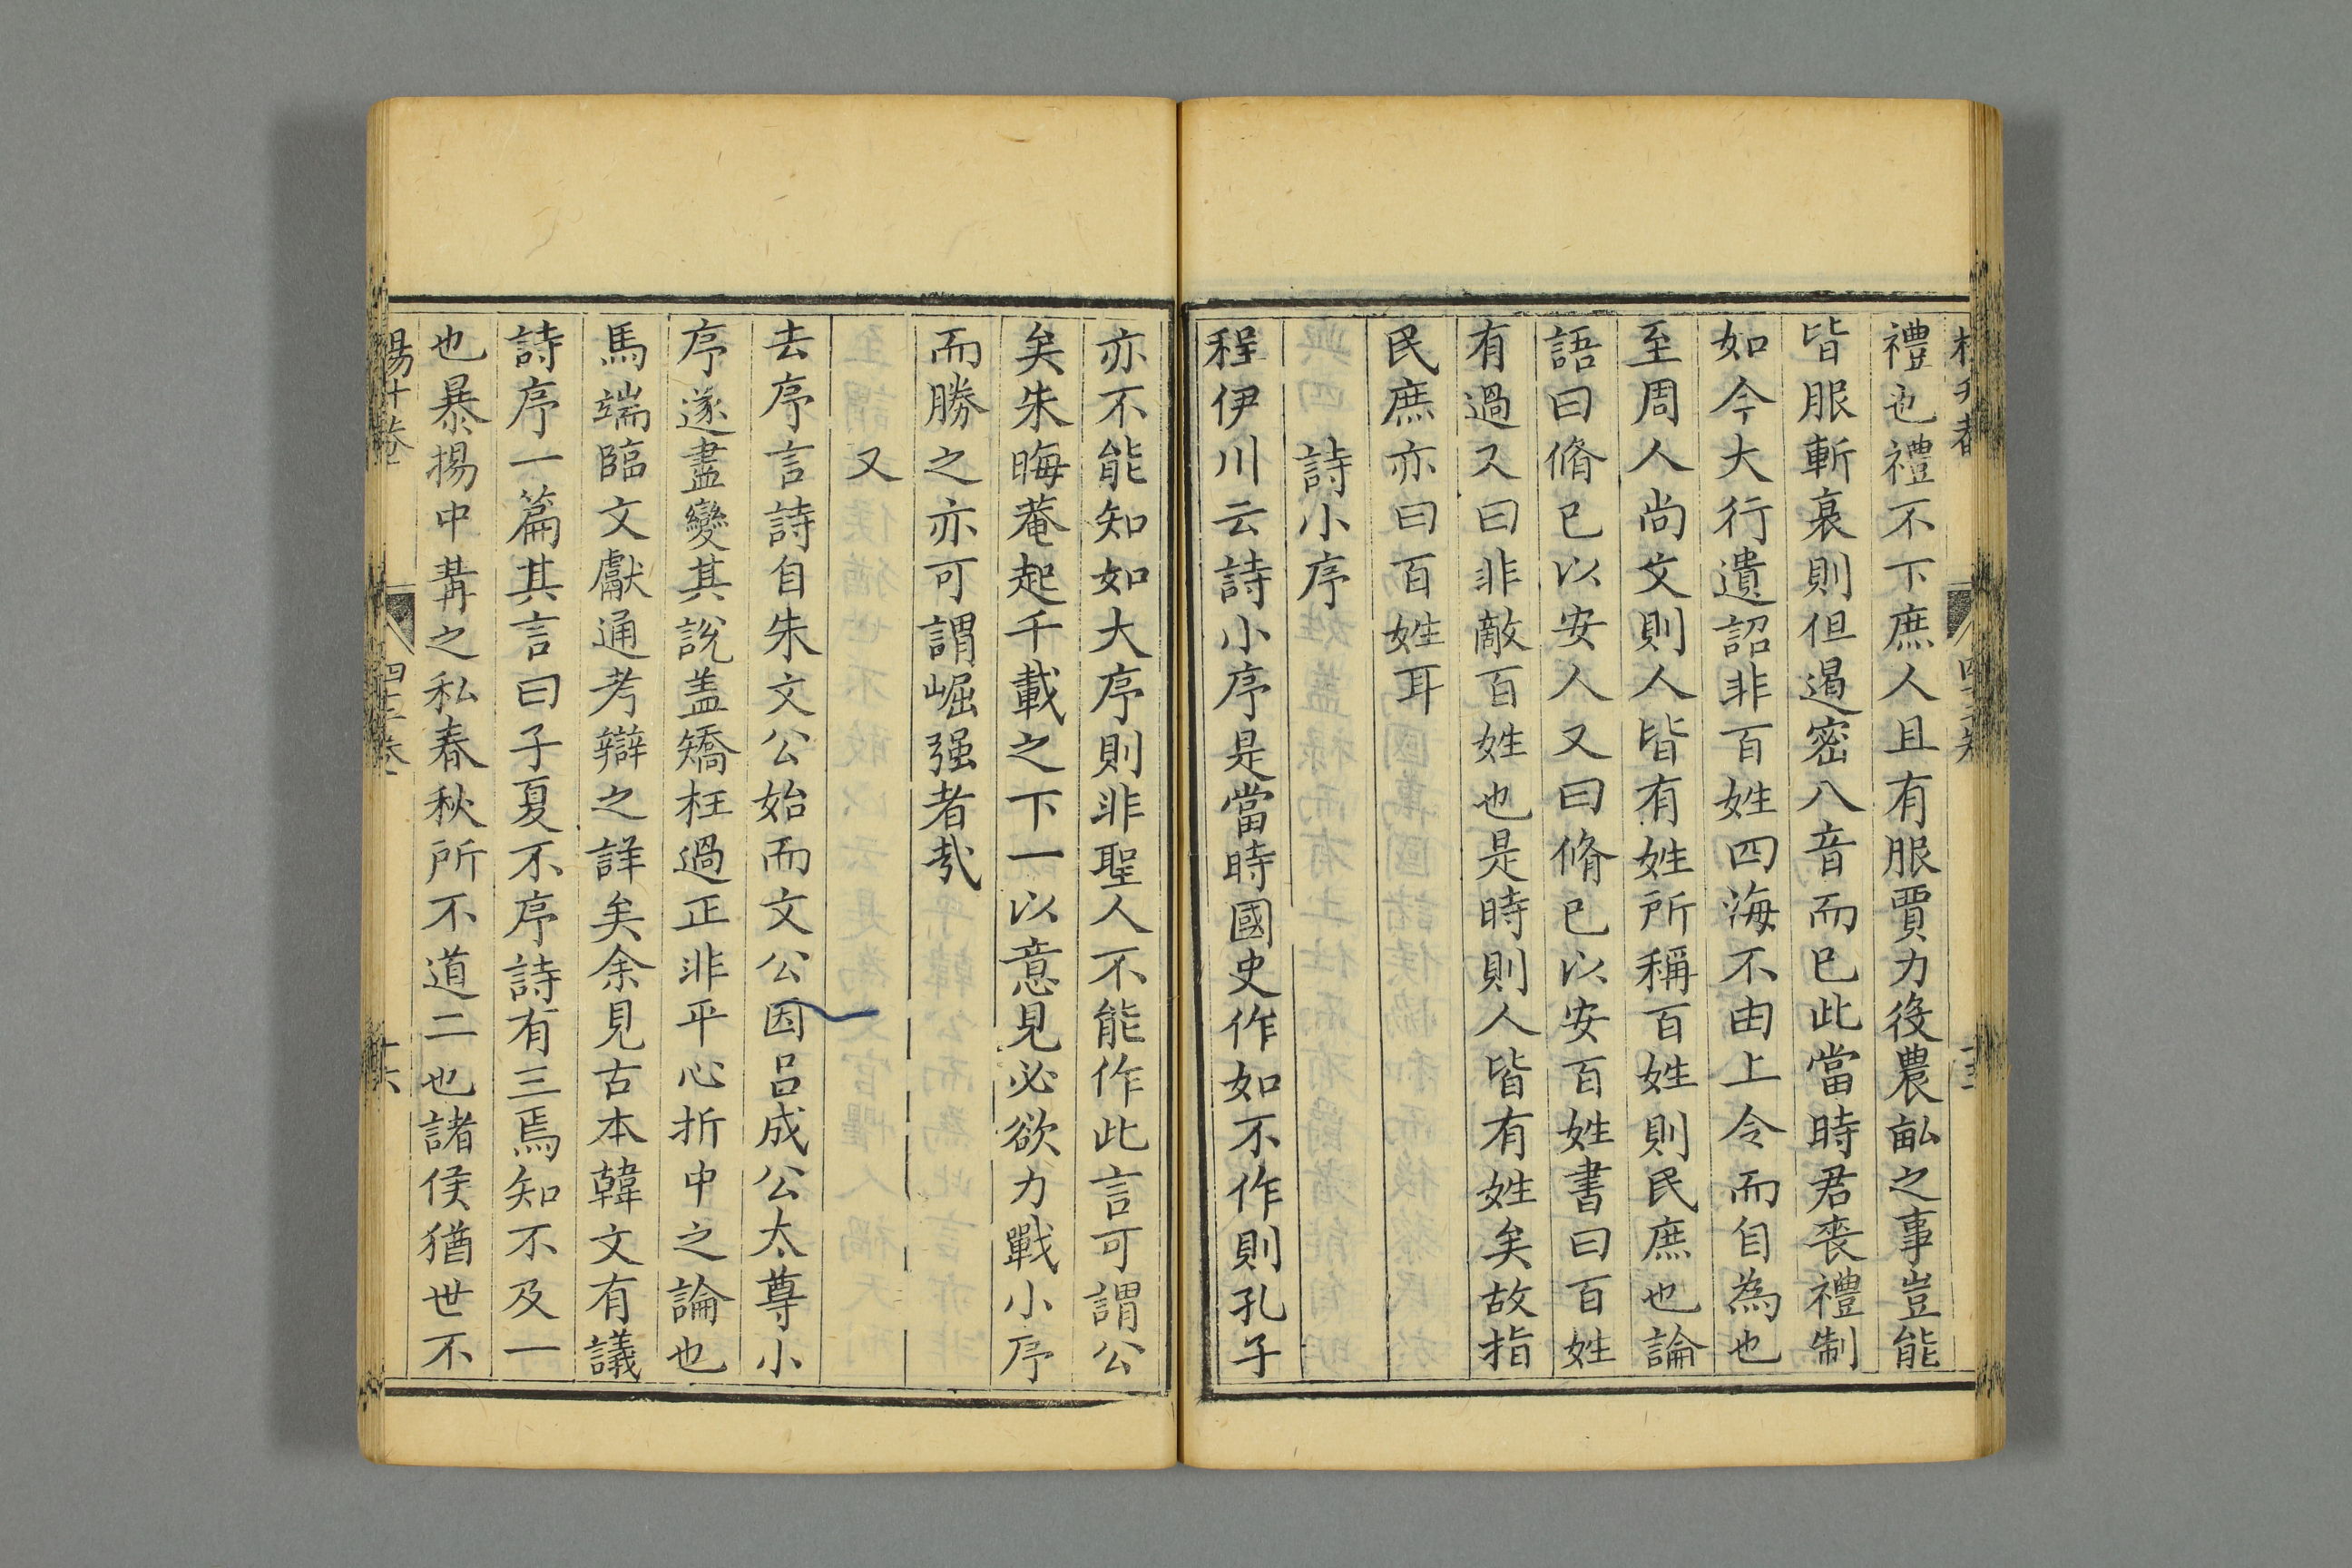 禮也禮不下庶人且有服賈力役農畝之事豈能
皆服斬衰則但遏密八音而已此當時君喪禮制
如今大行遺詔非百姓四海不由上令而自為也
至周人尚文則人皆有姓所稱百姓則民庶也論
語曰脩已以安人又曰脩已以安百姓書曰百姓
有過又曰非敵百姓也是時則人皆有姓矣故指
民庶亦曰百姓耳
詩小序
程伊川云詩小序是當時國史作如不作則孔子
亦不能知如大序則非聖人不能作此言可謂公
矣朱晦菴起千載之下一以意見必欲力戰小序
而勝之亦可謂崛强者㢤
又
去序言詩自朱文公始而文公因呂成公太尊小
序遂盡變其說盖矯枉過正非平心折中之論也
馬端臨文獻通考辯之詳矣余見古本韓文有議
詩序一篇其言曰子夏不序詩有三焉知不及一
也暴揚中冓之私春秋所不道二也諸侯猶世不